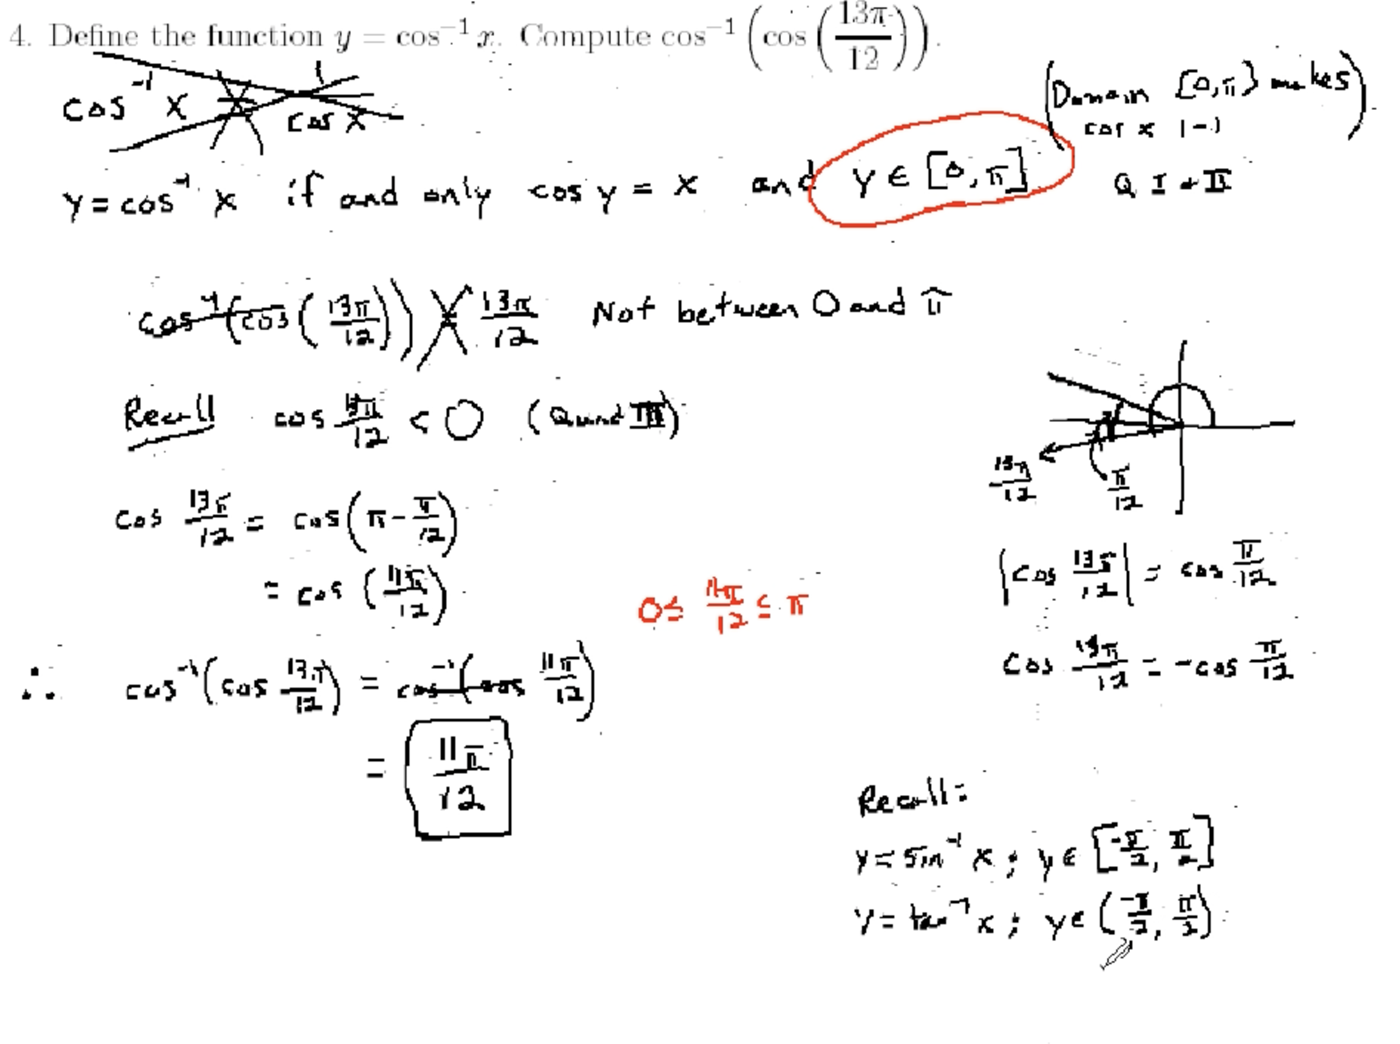 4. Define the function y = cos⁻¹ x. Compute cos⁻¹(cos(13π/12)).
(Domain [0,π] makes
cos x 1-1).
cos⁻¹ x ≠ 1/cos x
y = cos⁻¹ x if and only cos y = x and y ∈ [0,π] Q I + II
cos⁻¹(cos(13π/12)) ≠ 13π/12 Not between 0 and π
Recall cos 13π/12 < 0 (Quad III)
13π/12 π/12
cos 13π/12 = cos(π - π/12)
= cos(11π/12) 0 ≤ 11π/12 ≤ π
|cos 13π/12| = cos π/12
cos 13π/12 = -cos π/12
∴ cos⁻¹(cos 13π/12) = cos⁻¹(cos 11π/12)
= 11π/12
Recall:
y = sin⁻¹ x ; y ∈ [-π/2, π/2]
y = tan⁻¹ x ; y ∈ (-π/2, π/2)